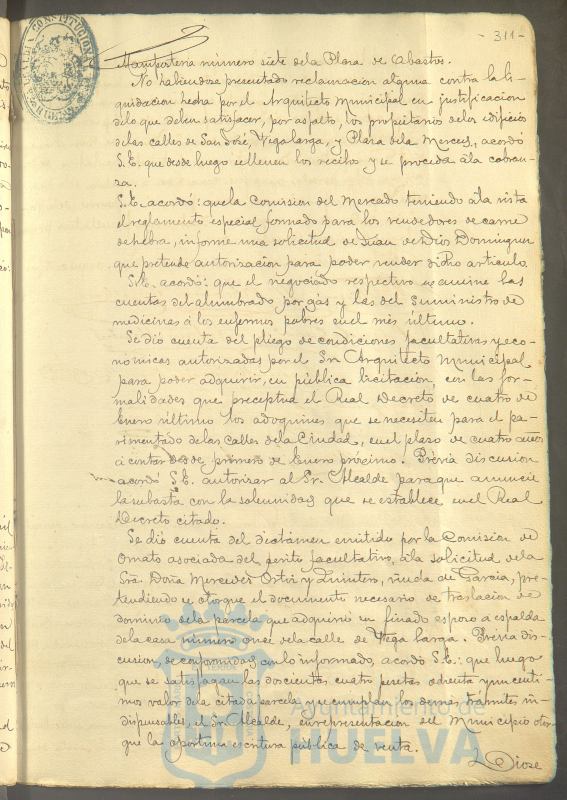 - 311 -
ALCALDIA CONSTITUCIONAL
Mamposteria número siete de la Plaza de Abastos.
No habiendose presentado reclamacion alguna contra la li-
quidacion hecha por el Arquitecto Municipal en justificacion
de lo que deben satisfacer, por asfalto, los propietarios de los edificios
de las calles de San José, Vega larga, y Plaza de la Merced, acordó
S.E. que desde luego se llenen los recibos y se proceda á la cobran-
za.
S.E. acordó: que la Comision del Mercado teniendo á la vista
el reglamento especial formado para los vendedores de carne
de hebra, informe una solicitud de Juan de Dios Dominguez
que pretende autorizacion para poder vender dicho articulo.
S.E. acordó: que el negociado respectivo examine las
cuentas del alumbrado por gas y las del suministro de
medicinas á los enfermos pobres en el mes último.
Se dió cuenta del pliego de condiciones facultativas y eco-
nomicas autorizadas por el Sr. Arquitecto Municipal
para poder adquirir, en pública licitacion, con las for-
malidades que preceptua el Real Decreto de cuatro de
Enero último los adoquines que se necesiten para el pa-
vimentado de las calles de la Ciudad, en el plazo de cuatro años
á contar desde primero de Enero próximo. Previa discusion
acordó S.E. autorizar al Sr. Alcalde para que anuncie
la subasta con la solemnidad que se establece en el Real
Decreto citado.
Se dió cuenta del dictámen emitido por la Comision de
Ornato asociada del perito facultativo, á la solicitud de la
Sra. Doña Mercedes Ortiz y Quintero, viuda de Garcia, pre-
tendiendo se otorgue el documento necesario de traslacion de
dominio de la parcela que adquirió su finado esposo á espalda
de la casa número once de la calle de Vega larga. Previa dis-
cusion, de conformidad con lo informado, acordó S.E.: que luego
que se satisfagan las doscientas cuatro pesetas ochenta y un centi-
mos valor de la citada parcela y se cumplan los demas trámites in-
dispensables, el Sr. Alcalde, en representacion del Municipio otor-
gue la oportuna escritura pública de venta.
Diose
Ayuntamiento de
HUELVA